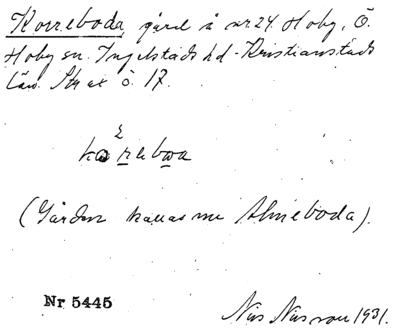 Korreboda, gård å nr 24 Hoby, Ö.
Hoby sn. Ingelstads hd - Kristianstads
län. Str ax ö. 17.
(Gården kallas nu Almeboda).
Nr 5445
Nils Nilsson 1931.